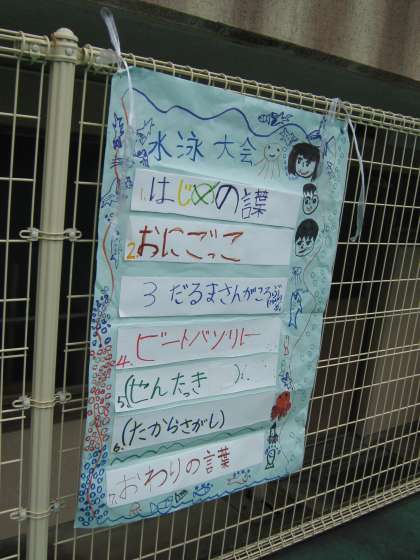 水泳大会
1.はじめの言葉
2.おにごっこ
3 だるまさんがころ
4.ビートバンリレー
5.(せんたっき )
6.(たからさがし)
7.おわりの言葉